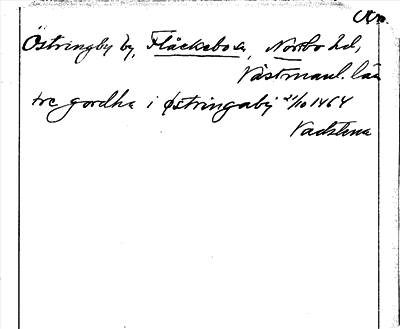 Östringby by, Fläckebo sn, Norrbo hd,
Västmanl. län
tre gordha i Østringabÿ 21/10 1464
Vadstena